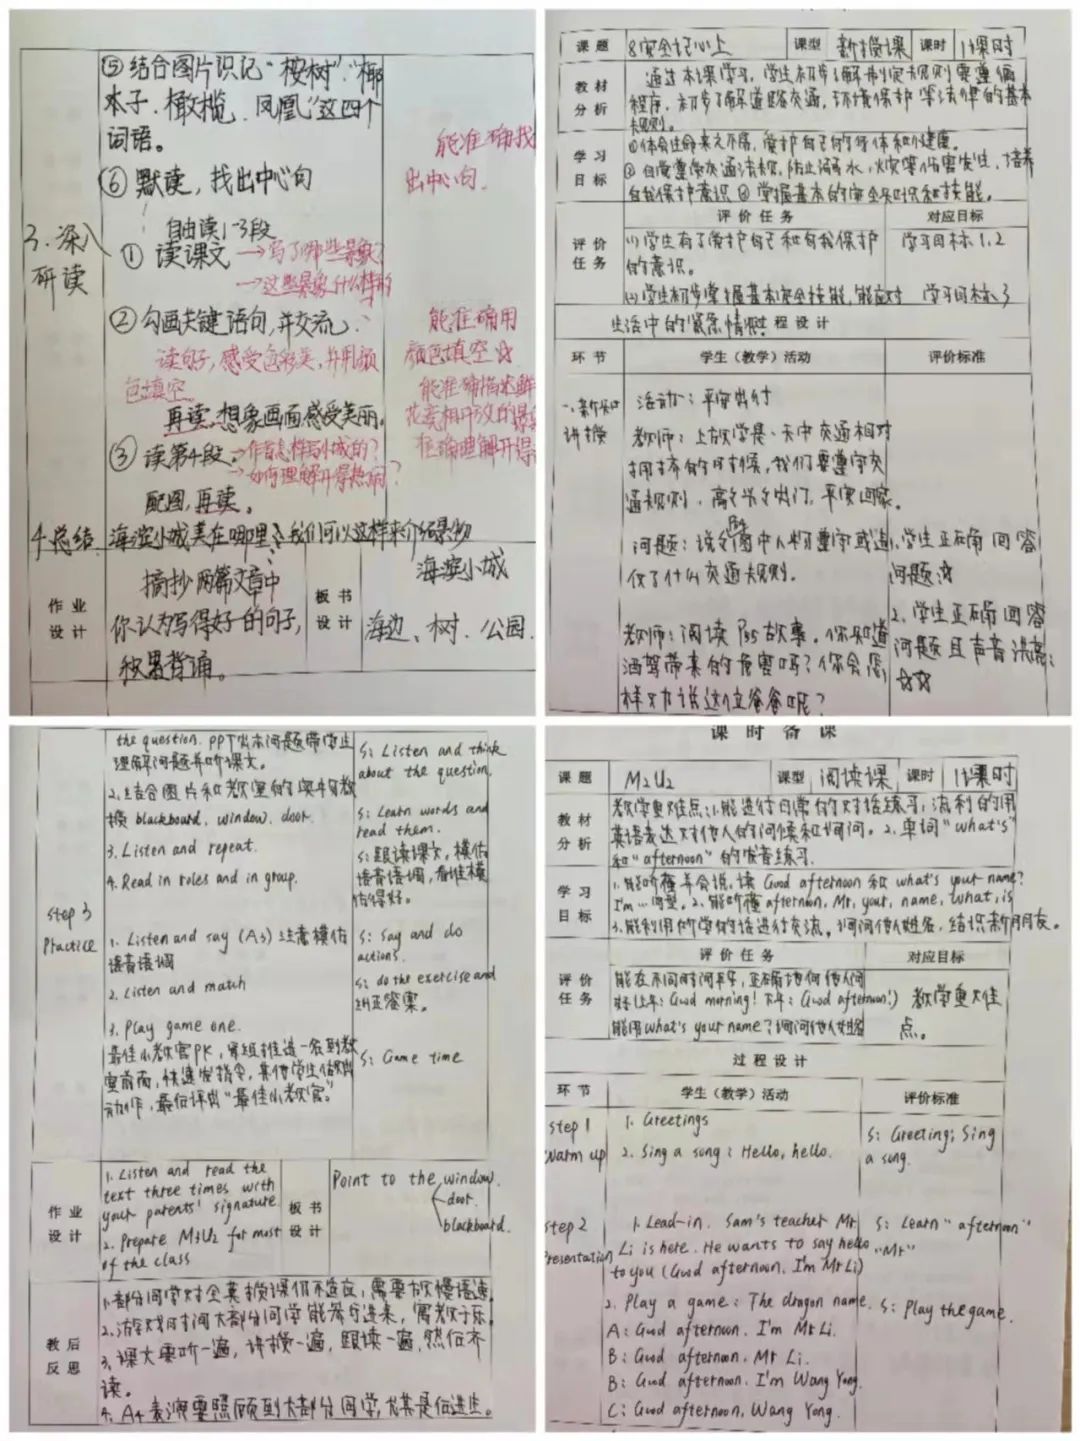 ⑤结合图片识记“桉树”“椰
子、橄榄、凤凰”这四个
词语。
⑥默读，找出中心句
能准确找
出中心句.
3.深入
研读
自由读1-3段
①读课文→写了哪些景象?
→这些景象什么样的
②勾画关键语句,并交流.
读句子,感受色彩美,并用颜
色填空.
再读.想象画面感受美丽.
能准确用
颜色填空☆
能准确描述鲜
③读第4段.→作者怎样写小城的?
→如何理解开得热闹?
配图,再读.
4.总结.海滨小城美在哪里?我们可以这样来介绍景物
作业
设计
摘抄两篇文章中
你认为写得好的句子,
积累背诵。
板书
设计
海滨小城
海边、树、公园.
课题
8安全记心上
课型
新授课
课时
1课时
教材
分析
通过本课学习,学生初步了解制定规则要遵循
程序,初步了解道路交通,环境保护等法律的基本
规则。
学习
目标
①体会生命来之不易,爱护自己的身体和健康.
②自觉遵守交通法规,防止溺水,火灾等伤害发生,培养
自我保护意识③掌握基本的安全知识和技能。
评价任务
对应目标
评价
任务
(1)学生有了爱护自己和自我保护
的意识。
学习目标1.2
(2)学生初步掌握基本安全技能,能应对
生活中的紧急情况
学习目标3
过程设计
环节
学生（教学）活动
评价标准
一、新知
讲授
活动一:平安出行
教师:上放学是一天中交通相对
拥挤的时候,我们要遵守交
通规则,高高兴兴出门,平安回家.
问题:说说图中人物遵守或违
反了什么交通规则.
1.学生正确回答
问题☆
2.学生正确回答
问题且声音洪亮:
☆☆
教师:阅读P55故事.你知道
酒驾带来的危害吗?你会怎
样对这位爸爸说呢?
the question. PPT出示问题带学生
理解问题并听课文。
2.结合图片和教室的实物教
授 blackboard, window, door.
3. Listen and repeat.
4. Read in roles and in group.
S: Listen and think
about the question.
S: Learn words and
read them.
S:跟读课文,模仿
语音语调,看谁模
仿得好。
Step 3
Practice
1. Listen and say (A3) 注意模仿
语音语调
2. Listen and match
3. Play game one.
最佳小教官PK,每组推选一名到教
室前面,快速发指令,其他学生做出
动作,最后评出“最佳小教官”。
S: Say and do
actions.
S: do the exercise and
纠正答案。
S: Game time
作业
设计
1. Listen and read the
text three times with
your parents' signature.
2. Prepare M3U2 for most
of the class
板书
设计
Point to the window.
door.
blackboard.
教后
反思
1.部分同学对全英授课仍不适应,需要放慢语速.
2.游戏时间大部分同学能参与进来,寓教于乐.
3.课文要听一遍,讲授一遍,跟读一遍,然后齐
读。
4. A4表演要照顾到大部分同学,尤其是后进生。
课时备课
课题
M2U2
课型
阅读课
课时
1课时
教材
分析
教学重难点:1.能进行日常的对话练习,流利的用
英语表达对他人的问候和询问。2.单词“what's”
和“afternoon”的发音练习.
学习
目标
1.能听懂并会说、读 Good afternoon 和 what's your name?
I'm…句型. 2.能听懂 afternoon, Mr, your, name, what, is
3.能利用所学的话进行交流,询问他人姓名,结识新朋友。
评价任务
对应目标
评价
任务
能在不同时间早午,正确
(上午: Good morning! 下午: Good afternoon!)
能用what's your name?询问他人姓名
教学重难
点。
过程设计
环节
学生（教学）活动
评价标准
Step 1
Warm up
1. Greetings
2. Sing a song: Hello, hello.
S: Greeting; Sing
a song.
Step 2
Presentation
1. Lead-in. Sam's teacher Mr
Li is here. He wants to say hello
to you (Good afternoon. I'm Mr Li)
S: Learn “afternoon”
“Mr”
2. Play a game: The dragon name.
S: Play the game.
A: Good afternoon. I'm Mr Li.
B: Good afternoon. Mr Li.
B: Good afternoon. I'm Wang Yong.
C: Good afternoon, Wang Yong.